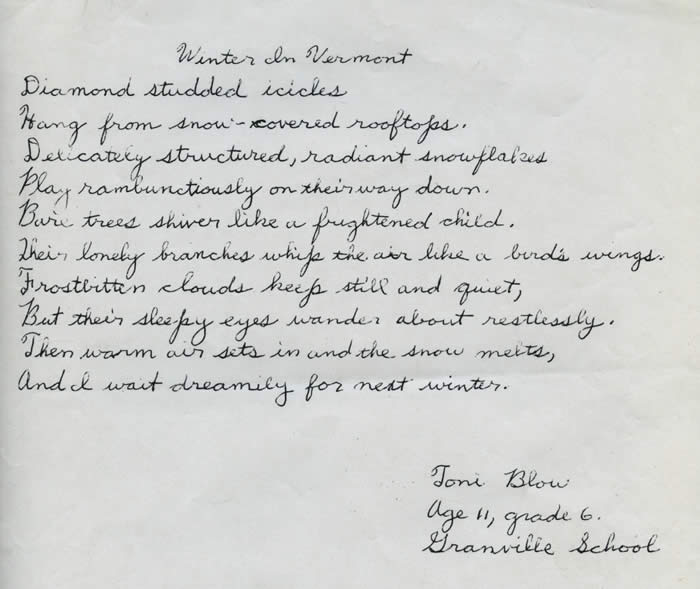 Winter In Vermont
Diamond studded icicles
Hang from snow-covered rooftops.
Delicately structured, radiant snowflakes
Play rambunctiously on their way down.
Bare trees shiver like a frightened child.
Their lonely branches whip the air like a bird's wings.
Frostbitten clouds keep still and quiet,
But their sleepy eyes wander about restlessly.
Then warm air sets in and the snow melts,
And I wait dreamily for next winter.
Toni Blow
Age 11, grade 6.
Granville School